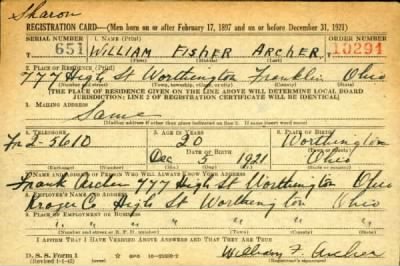 Sharon
REGISTRATION CARD—(Men born on or after February 17, 1897 and on or before December 31, 1921)
SERIAL NUMBER 1. NAME (Print) ORDER NUMBER
651 WILLIAM FISHER ARCHER 10291
(First) (Middle) (Last)
2. PLACE OF RESIDENCE (Print)
777 High St Worthington Franklin Ohio
(Number and street) (Town, township, village, or city) (County) (State)
[THE PLACE OF RESIDENCE GIVEN ON THE LINE ABOVE WILL DETERMINE LOCAL BOARD
JURISDICTION; LINE 2 OF REGISTRATION CERTIFICATE WILL BE IDENTICAL]
3. MAILING ADDRESS
Same
[Mailing address if other than place indicated on line 2. If same insert word same]
4. TELEPHONE 5. AGE IN YEARS 6. PLACE OF BIRTH
Fr 2-5610 20 Worthington
DATE OF BIRTH
Dec 5 1921 Ohio
7. NAME AND ADDRESS OF PERSON WHO WILL ALWAYS KNOW YOUR ADDRESS
Frank Archer 777 High St Worthington Ohio
8. EMPLOYER'S NAME AND ADDRESS
Kroger Co High St Worthington Ohio
9. PLACE OF EMPLOYMENT OR BUSINESS
" " " " "
(Number and street or R. F. D. number) (Town) (County) (State)
I AFFIRM THAT I HAVE VERIFIED ABOVE ANSWERS AND THAT THEY ARE TRUE
D. S. S. Form 1
(Revised 1-1-42) (over)
William F. Archer
(Registrant's signature)